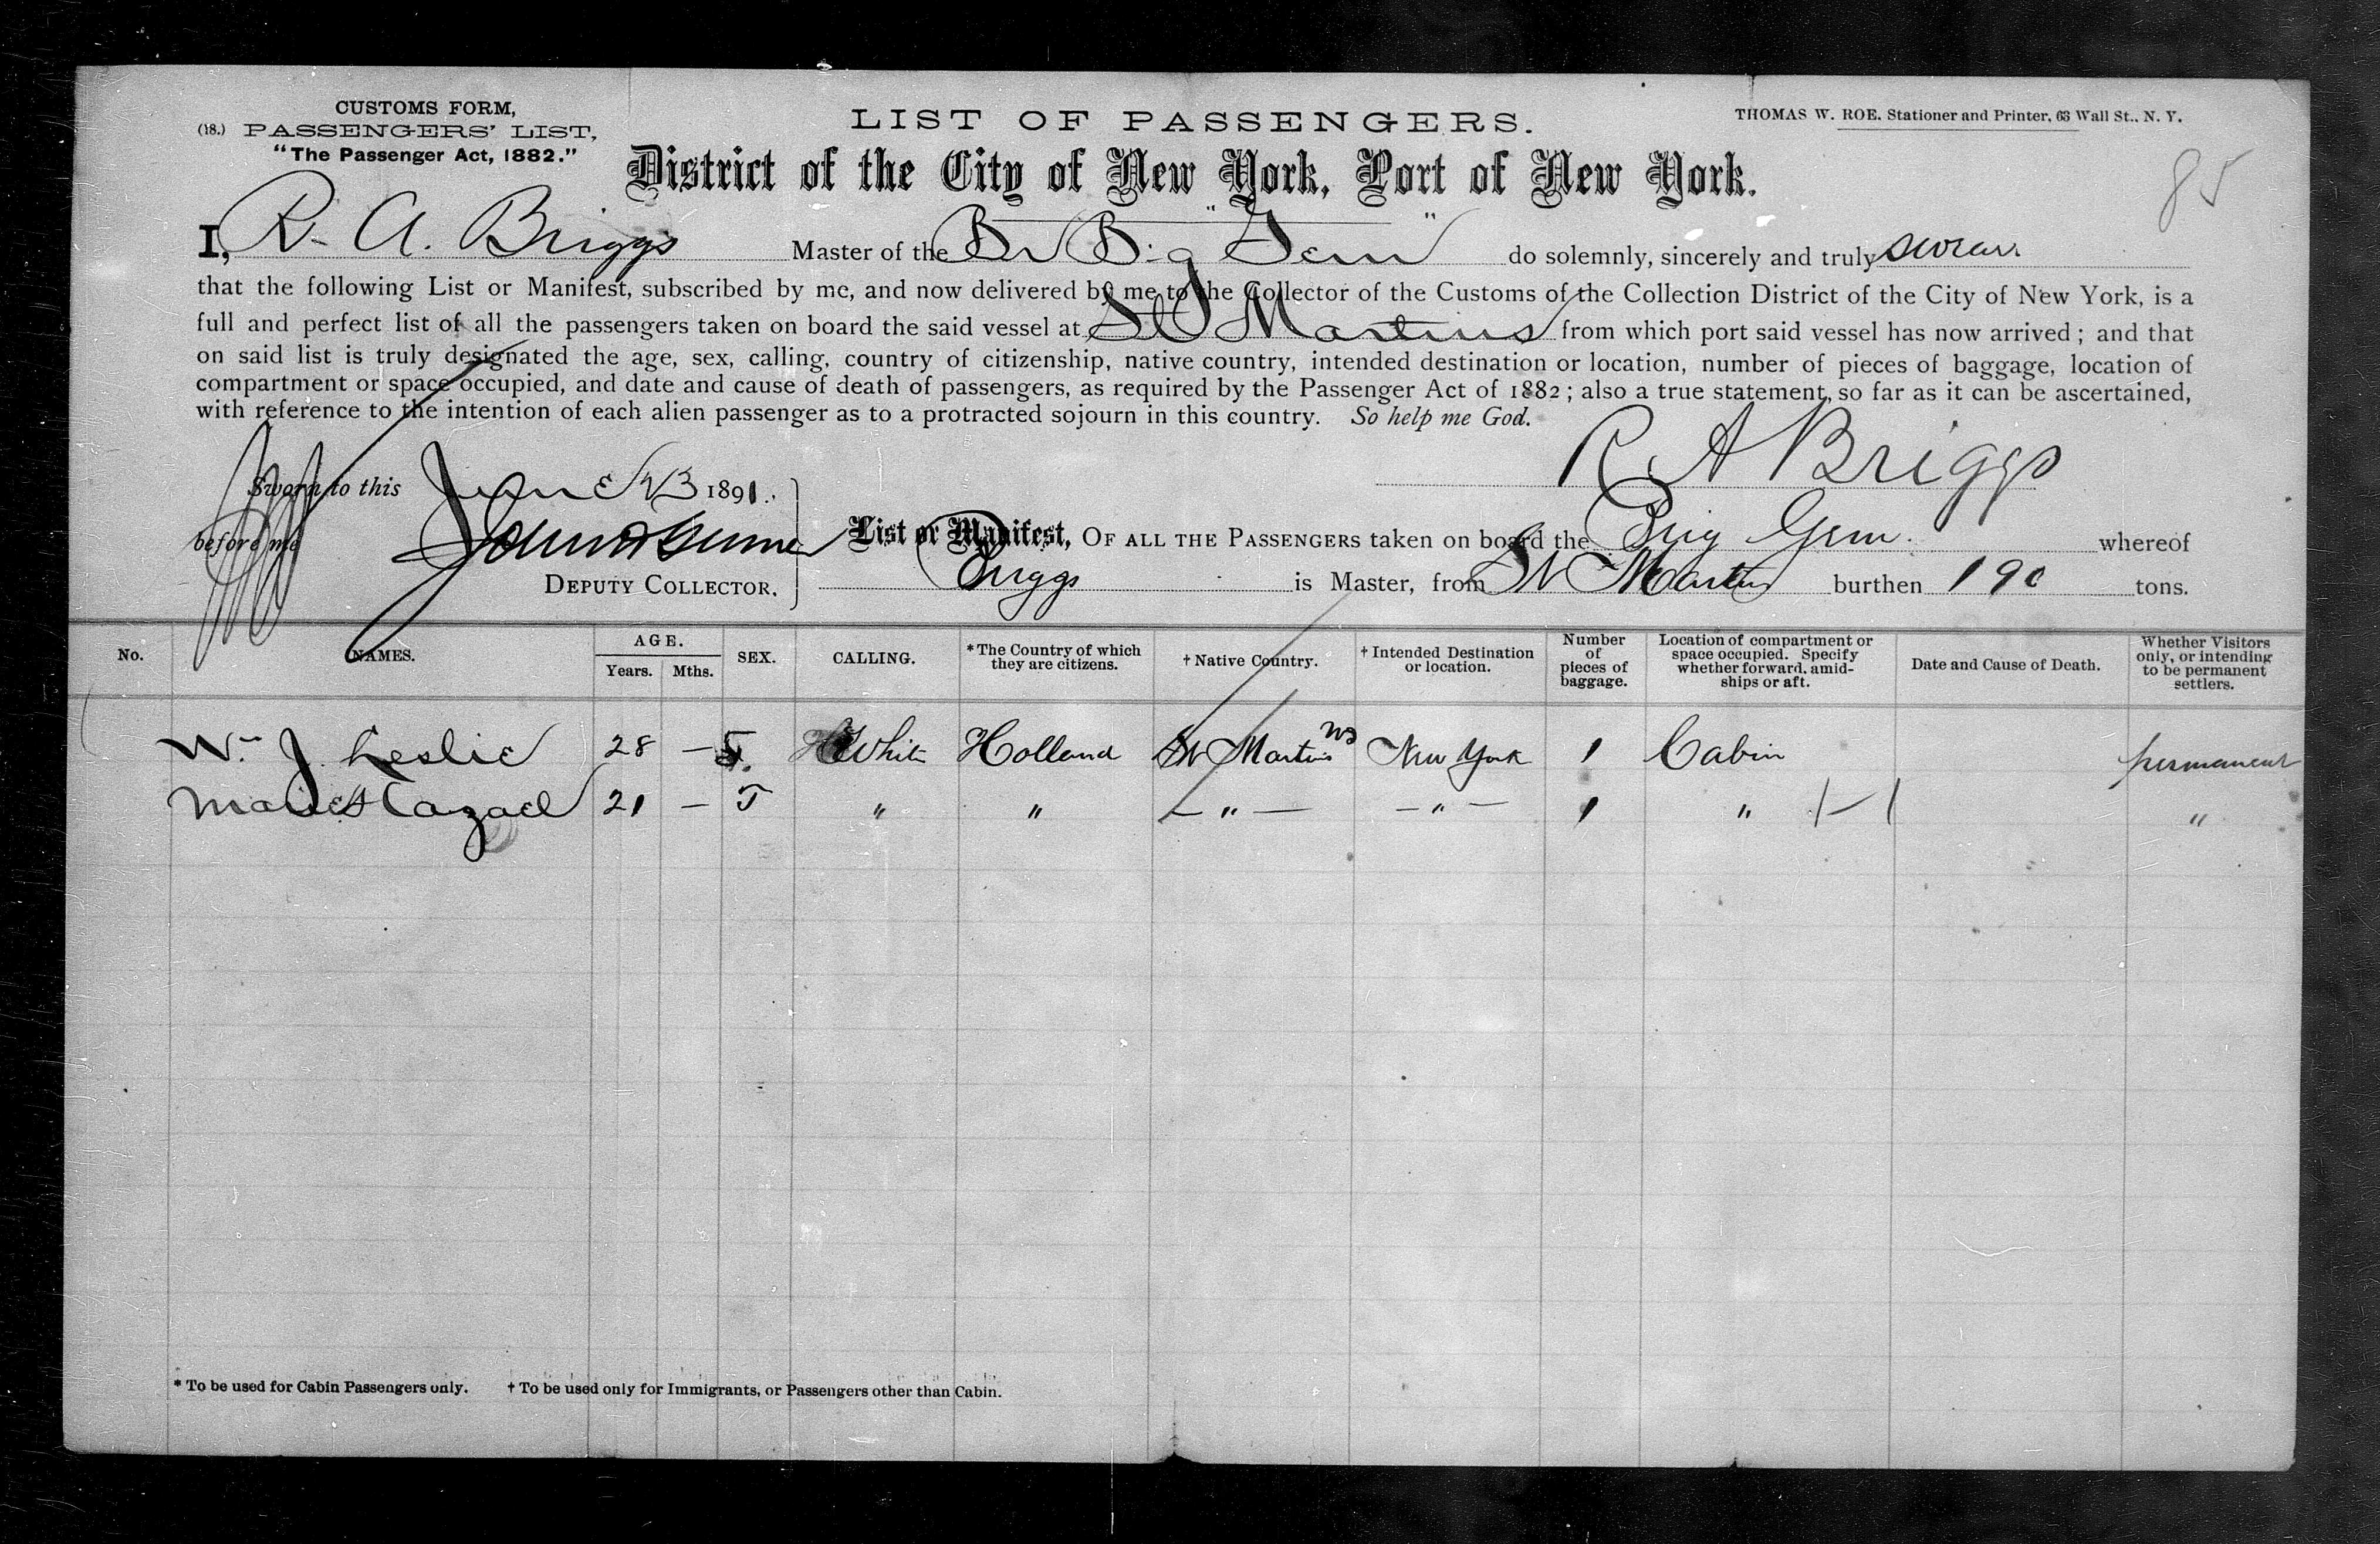 CUSTOMS FORM,
(18.) PASSENGERS' LIST,
"The Passenger Act, 1882."
LIST OF PASSENGERS.
THOMAS W. ROE. Stationer and Printer, 63 Wall St., N. Y.
District of the City of New York, Port of New York.
85
I, R. A. Briggs Master of the Br Big "Gem" do solemnly, sincerely and truly swear
that the following List or Manifest, subscribed by me, and now delivered by me to the Collector of the Customs of the Collection District of the City of New York, is a
full and perfect list of all the passengers taken on board the said vessel at St Martins from which port said vessel has now arrived; and that
on said list is truly designated the age, sex, calling, country of citizenship, native country, intended destination or location, number of pieces of baggage, location of
compartment or space occupied, and date and cause of death of passengers, as required by the Passenger Act of 1882; also a true statement, so far as it can be ascertained,
with reference to the intention of each alien passenger as to a protracted sojourn in this country. So help me God.
R A Briggs
Sworn to this June 23 1891.
before me
DEPUTY COLLECTOR.
List or Manifest, OF ALL THE PASSENGERS taken on board the Brig Gem. whereof
Briggs is Master, from St Martins burthen 190 tons.
No. NAMES. AGE. Years. Mths. SEX. CALLING. *The Country of which they are citizens. †Native Country. †Intended Destination or location. Number of pieces of baggage. Location of compartment or space occupied. Specify whether forward, amid-ships or aft. Date and Cause of Death. Whether Visitors only, or intending to be permanent settlers.
Wm J. Leslie 28 — White Holland St Martins New York 1 Cabin permanent
21 — " " — " — — " — 1 " "
* To be used for Cabin Passengers only. † To be used only for Immigrants, or Passengers other than Cabin.